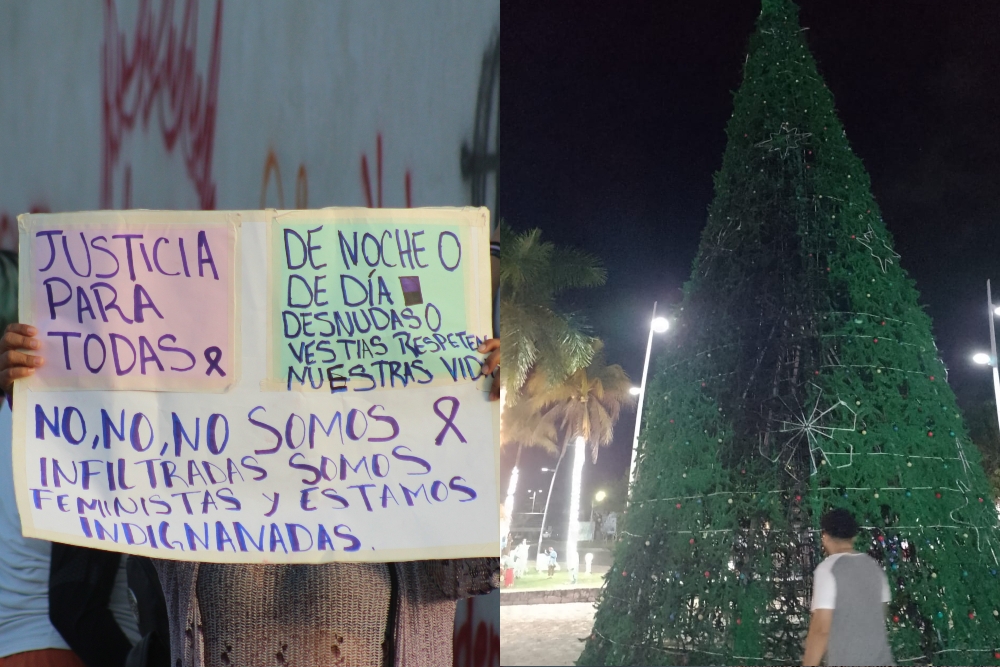 JUSTICIA
PARA
TODAS
DE NOCHE O
DE DÍA
DESNUDAS O
VESTIAS RESPETEN
NUESTRAS VID
NO, NO, NO SOMOS
INFILTRADAS SOMOS
FEMINISTAS Y ESTAMOS
INDIGNANADAS.